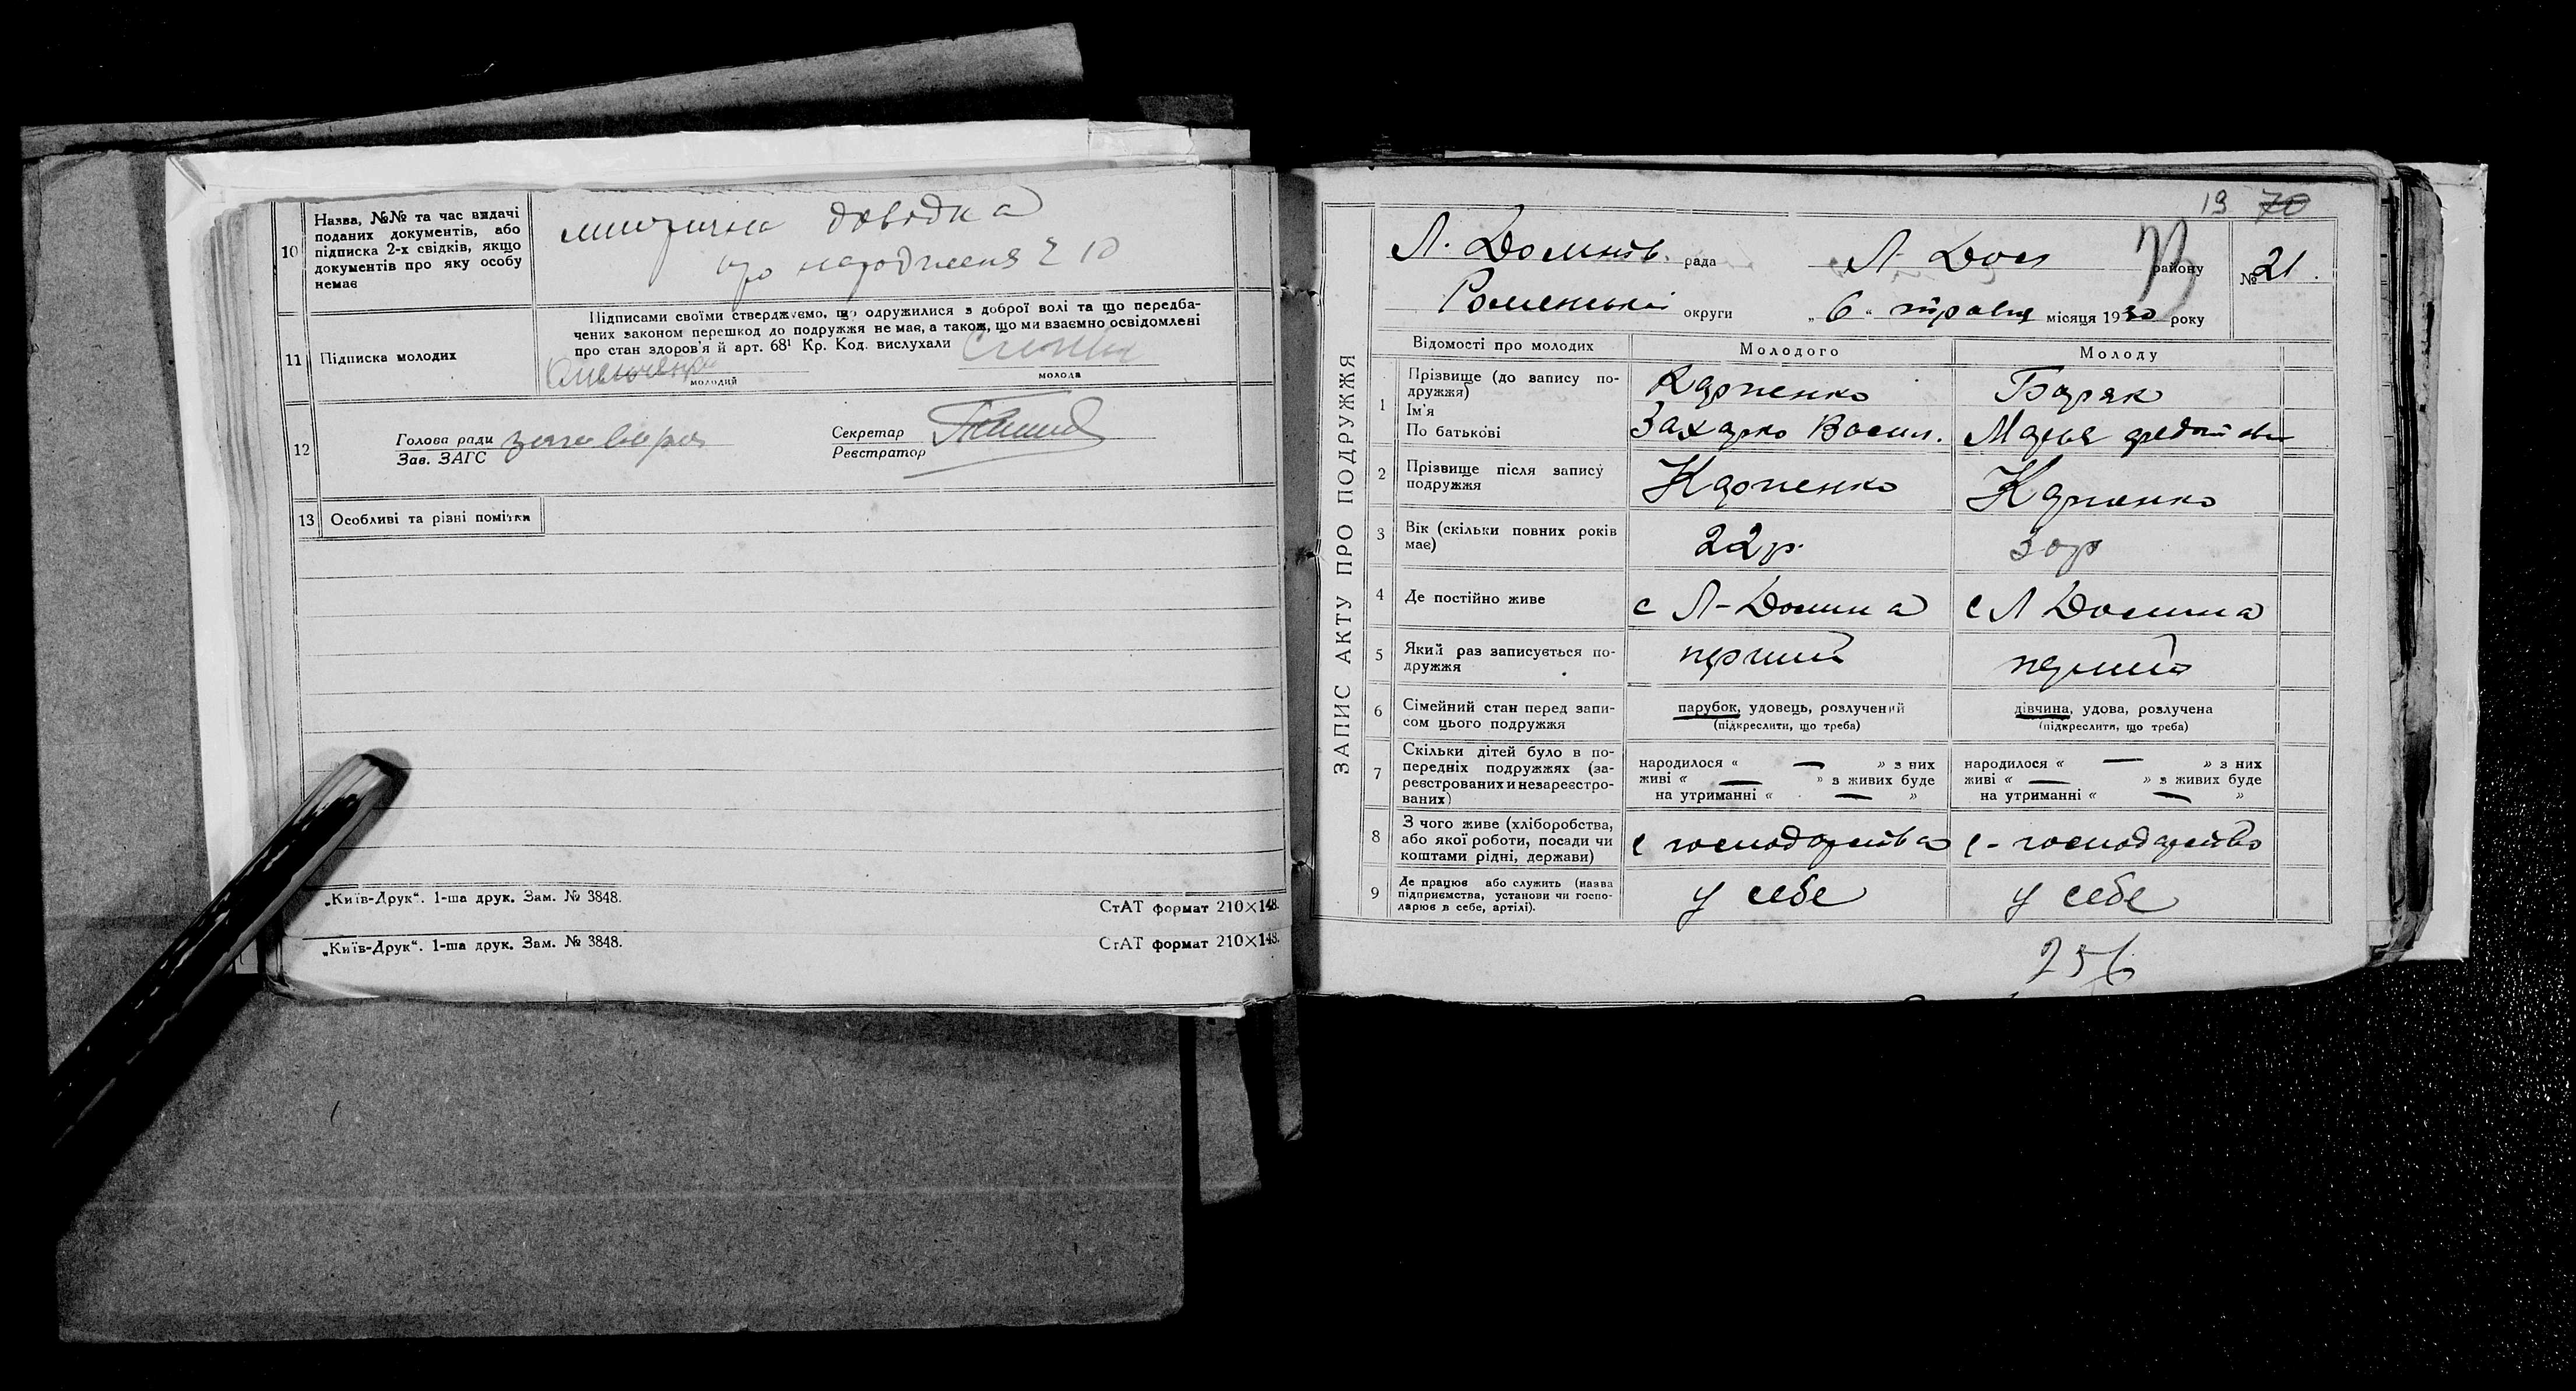 10 Назва, №№ та час видачі
поданих документів, або
підписка 2-х свідків, якщо
документів про яку особу
немає
довідка
про народження 2 10
11 Підписка молодих
Підписами своїми стверджуємо, що одружилися з доброї волі та що передба-
чених законом перешкод до подружжя не має, а також, що ми взаємно освідомлені
про стан здоров'я й арт. 68¹ Кр. Код. вислухали
молодий молода
12 Голова ради
Зав. ЗАГС
Секретар
Реєстратор
13 Особливі та різні помітки
„Київ-Друк“. 1-ша друк. Зам. № 3848. СтАТ формат 210×148.
„Київ-Друк“. 1-ша друк. Зам. № 3848. СтАТ формат 210×148.
ЗАПИС АКТУ ПРО ПОДРУЖЖЯ
19 70
Л. Долинів. рада Л. Дол району № 21.
Роменської округи „6“ травня місяця 1930 року
Відомості про молодих Молодого Молоду
1 Прізвище (до запису по-
дружжя) Карпенко Баряк
Ім'я
По батькові Захарко Васил. Марья
2 Прізвище після запису
подружжя Карпенко Карпенко
3 Вік (скільки повних років
має) 22 р. 30 р
4 Де постійно живе с Л-Долина с Л Долина
5 Який раз записується по-
дружжя перший перший
6 Сімейний стан перед запи-
сом цього подружжя
парубок, удовець, розлучений
(підкреслити, що треба)
дівчина, удова, розлучена
(підкреслити, що треба)
7 Скільки дітей було в по-
передніх подружжях (за-
реєстрованих и незареєстро-
ваних)
народилося « — » з них
живі « — » з живих буде
на утриманні « — »
народилося « — » з них
живі « — » з живих буде
на утриманні « — »
8 З чого живе (хліборобства,
або якої роботи, посади чи
коштами рідні, держави) с господарства с-господарство
9 Де працює або служить (назва
підприємства, установи чи госпо-
дарює в себе, артілі). у себе у себе
256